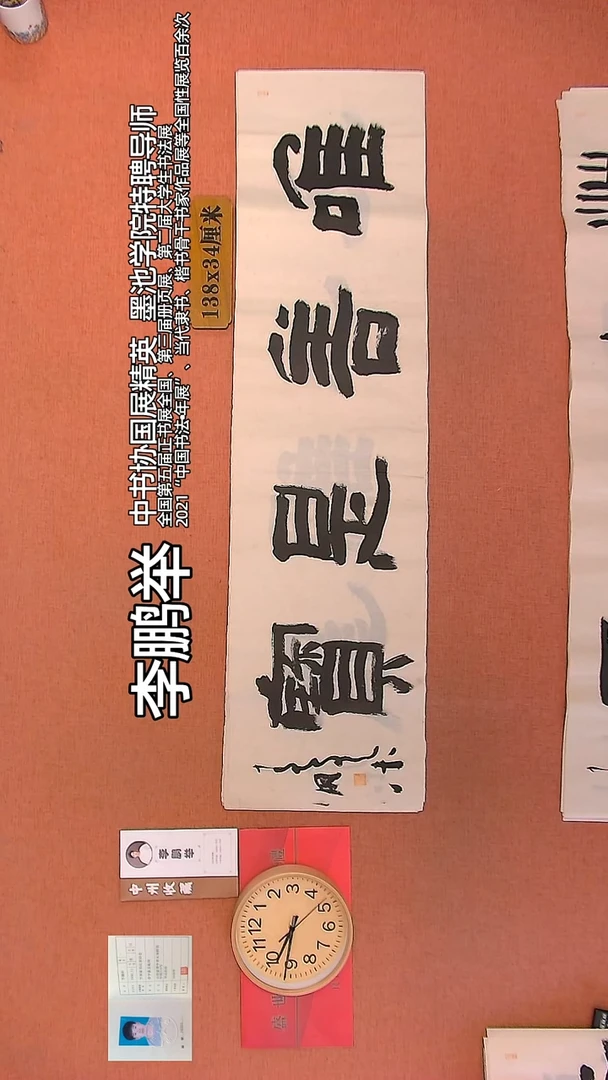 李鹏举
中书协国展精英 墨池学院特聘导师
全国第五届正书展全国、第三届册页展、第二届大学生书法展
2021“中国书法·年展”、当代隶书、楷书骨干书家作品展等全国性展览百余次
138x34厘米
唯善是寶
李鹏举
中州收藏
12 1 2 3 4 5 6 7 8 9 10 11